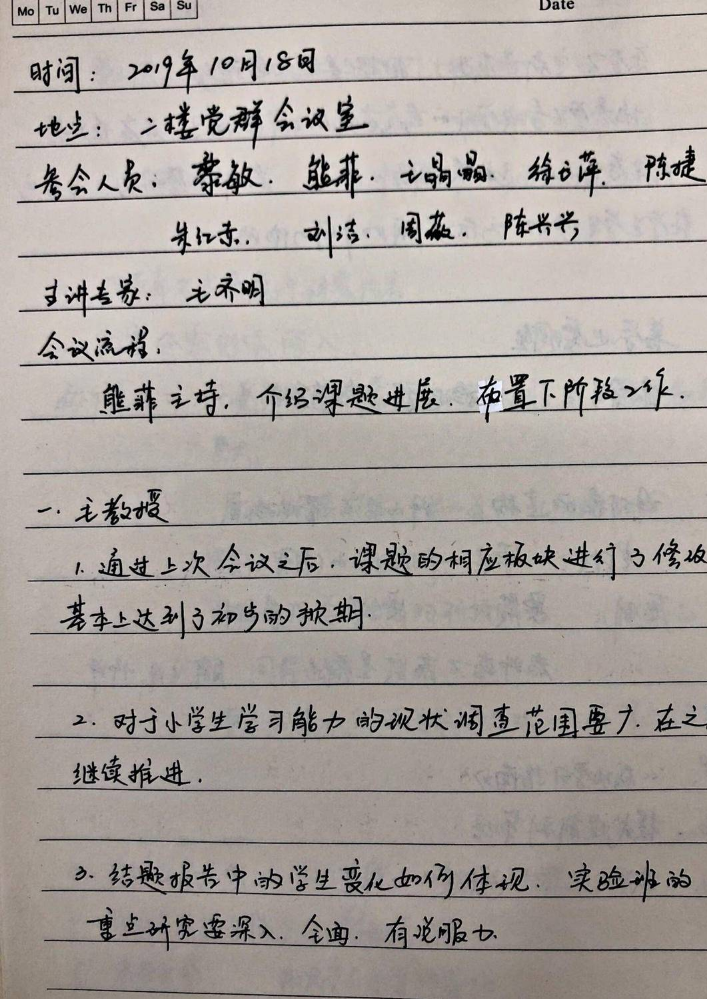 Mo Tu We Th Fr Sa Su
Date
时间: 2019年10月18日
地点: 二楼党群会议室
参会人员: 黎敏. 熊菲. 王晶晶 徐方萍. 陈捷
朱红东. 刘洁. 周薇. 陈兴兴
主讲专家: 毛齐明
会议流程:
熊菲主持. 介绍课题进展. 布置下阶段工作.
一. 毛教授
1. 通过上次会议之后. 课题的相应板块进行了修改
基本上达到了初步的预期.
2. 对于小学生学习能力的现状调查范围要广. 在之
继续推进.
3. 结题报告中的学生变化如何体现. 实验班的
重点研究要深入. 全面. 有说服力.